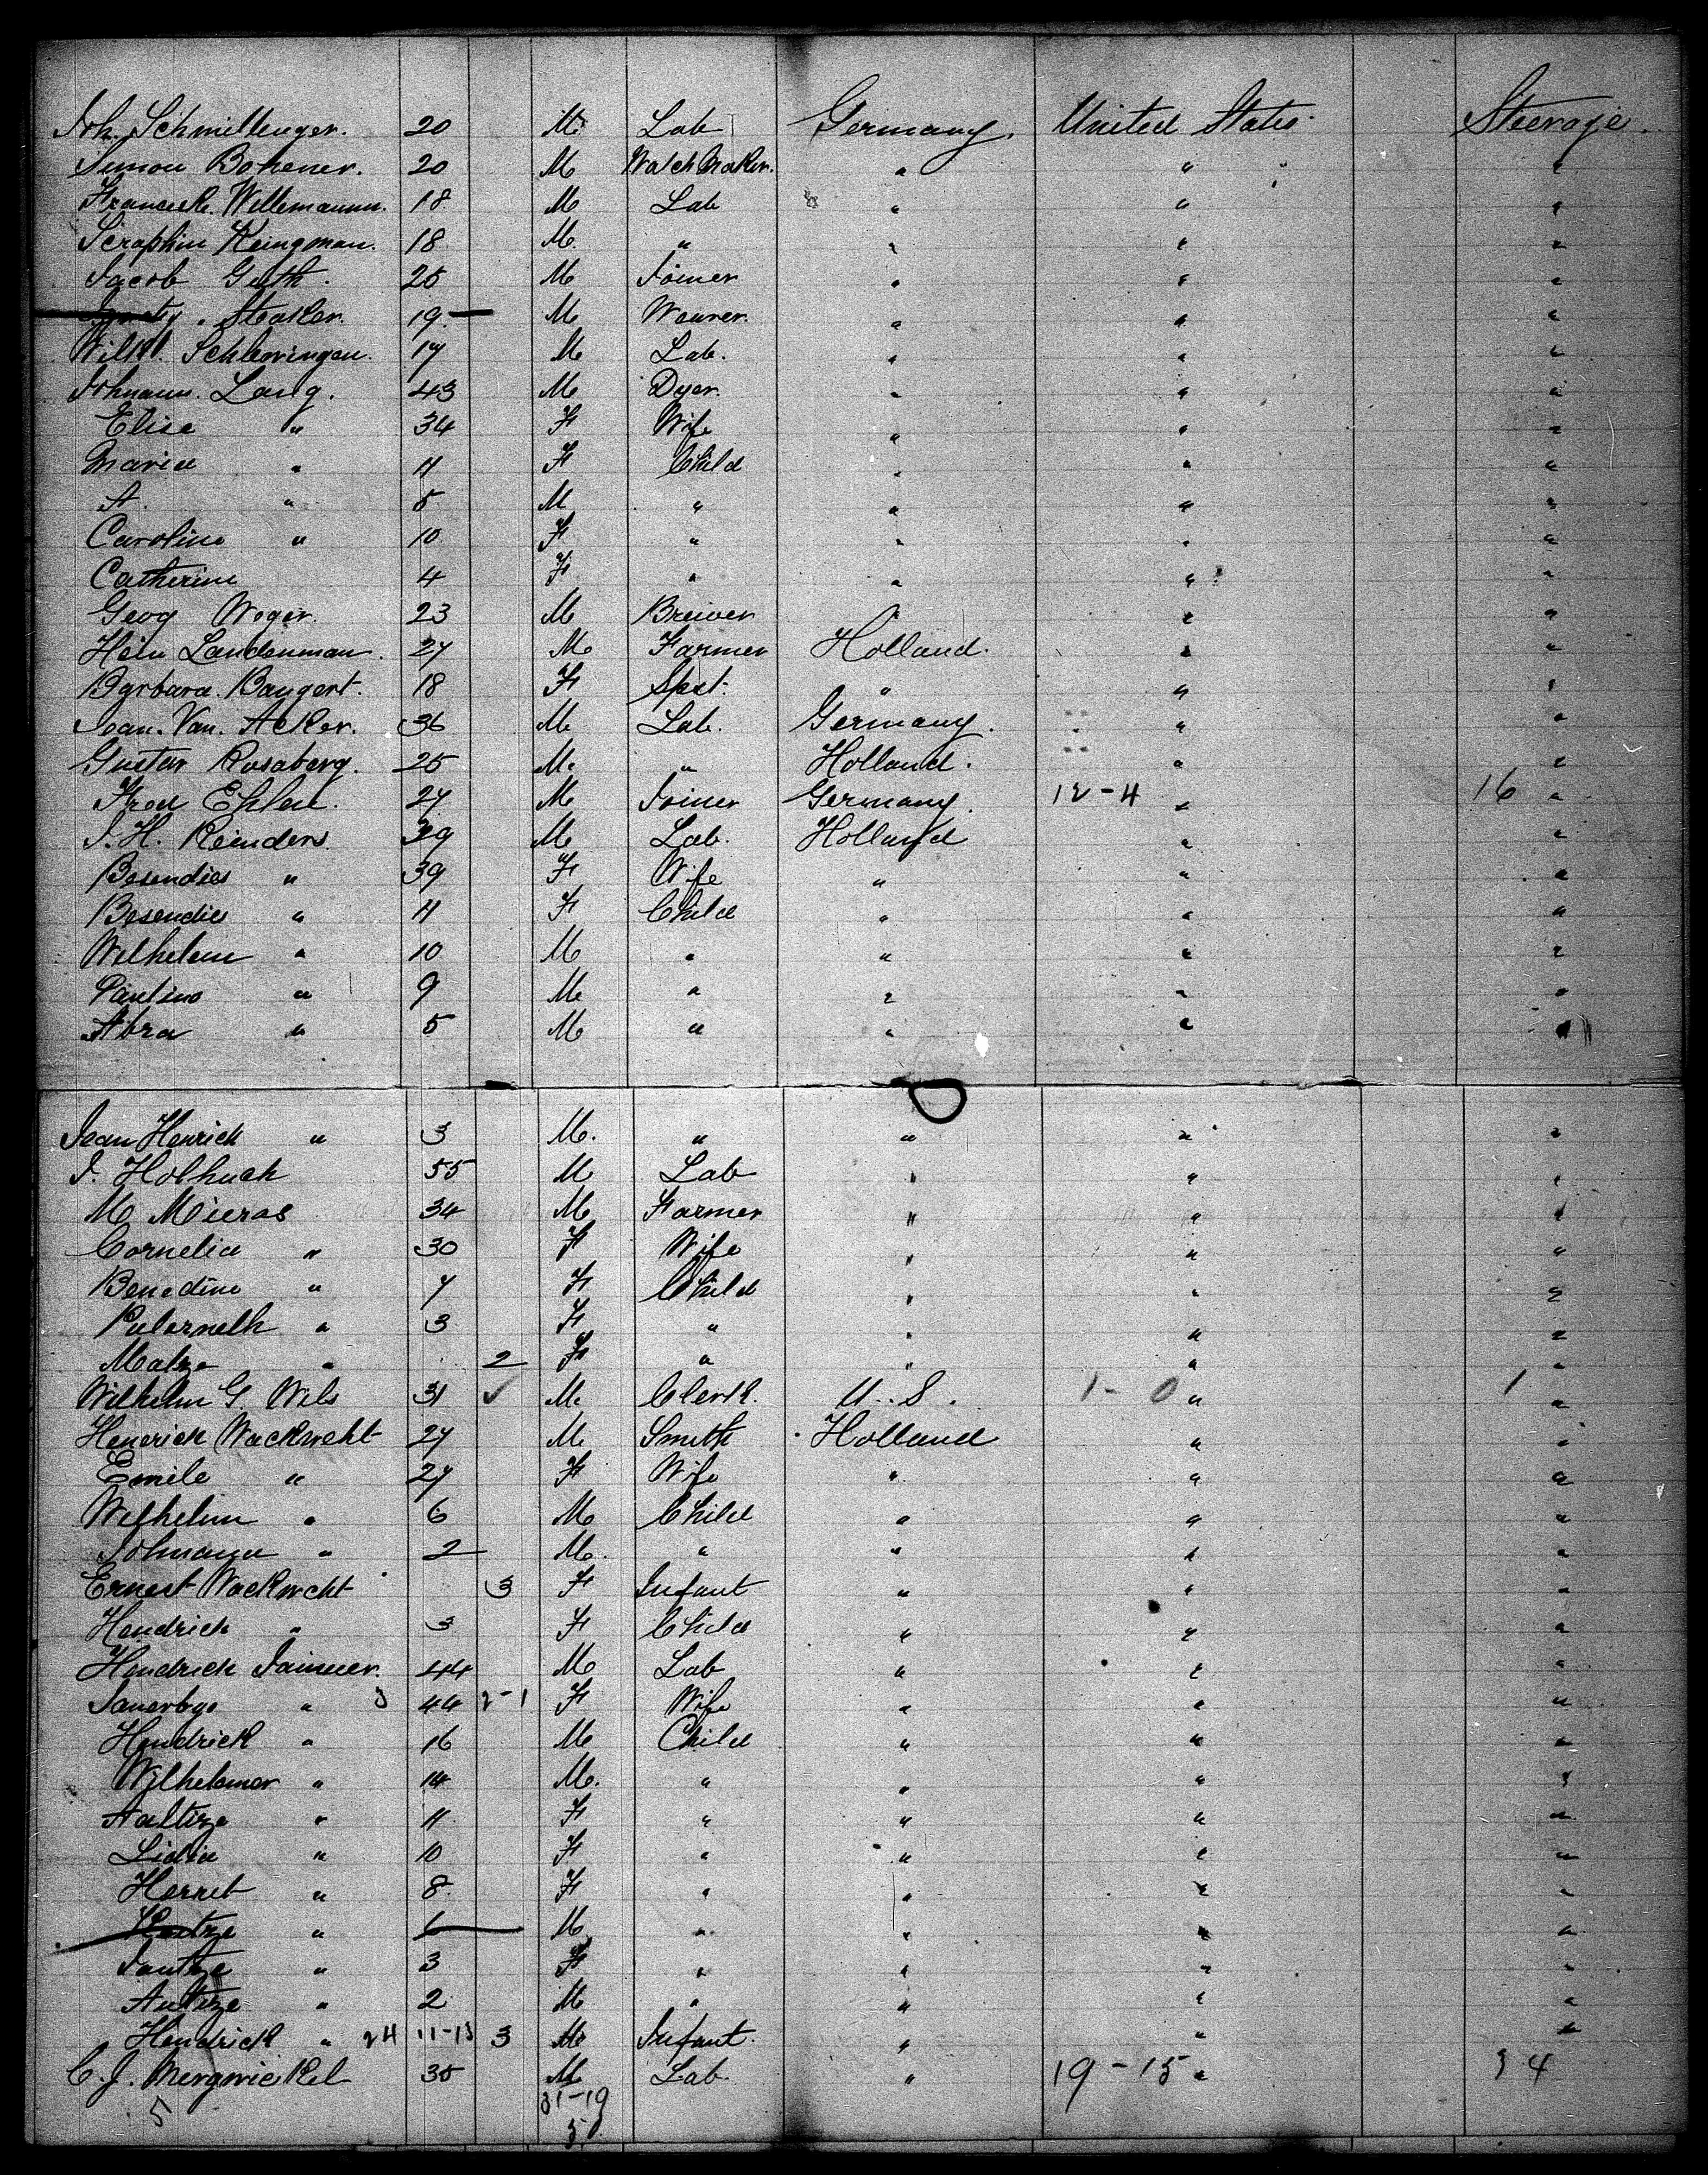 Joh. Schmillenger. 20 M Lab Germany. United States. Steerage.
Simon Bohener. 20 M Watch Maker. " " "
Franciek. Willemann. 18 M Lab " " "
Seraphim Kingman. 18 M. " " " "
Jacob Guth. 25 M Joiner " " "
Steaker. 19 M Weaver. " " "
Wilh. Schleveringen. 17 M Lab. " " "
Johnann. Lang. 43 M Dyer. " " "
Elise " 34 F Wife " " "
Maria " 11 F Child " " "
A. " 5 M " " " "
Caroline " 10 F " " " "
Catherine 4 F " " " "
Geog Woger. 23 M Brewer " "
Hein Landenman. 27 M Farmer Holland. " "
Barbara. Bangert. 18 F Spst. " " "
Jean. Van. Acker. 36 M Lab. Germany. " "
Gustav Rosaberg. 25 M. " Holland. " "
Fred Ehlen. 27 M Joiner Germany. 12-4 " 16 "
J. H. Reinders 39 M Lab. Holland " "
Besendies " 39 F Wife " " "
Besendies " 11 F Child " " "
Wilhelem " 10 M " " " "
Paulino " 9 M " " " "
Abra " 5 M " " " "
Jean Henrick " 3 M. " " " "
J. Holhuch 55 M Lab " " "
M Mieras 34 M Farmer " " "
Cornelia " 30 F Wife " " "
Benedine " 7 F Child " " "
" 3 F " " " "
Matze " 2 F " " " "
Wilhelm G. Wils 31 ✓ M. Clerk. U.S. 1-0 " 1 "
Henerick Wackweht 27 M Smith Holland " "
Emile " 27 F Wife " " "
Wilhelim " 6 M Child " " "
Johnana " 2 M. " " " "
Ernest Wackwcht 3 F Infant " " "
Hendrick " 3 F Child " " "
Hendrick 44 M Lab " " "
" 3 44 2-1 F Wife " " "
Hendrick " 16 M Child " " "
Wilhelemer " 14 M. " " " "
Aaltize " 11 F " " " "
Lidia " 10 F " " " "
Herret " 8 F " " " "
" 6 M " " " "
Jantze " 3 F " " " "
Antize " 2 M " " " "
Hendrick " 24 11-13 3 M Infant. " " "
C. J. Mergwickel 35 M Lab. " 19-15 " 34
5 31-19
50